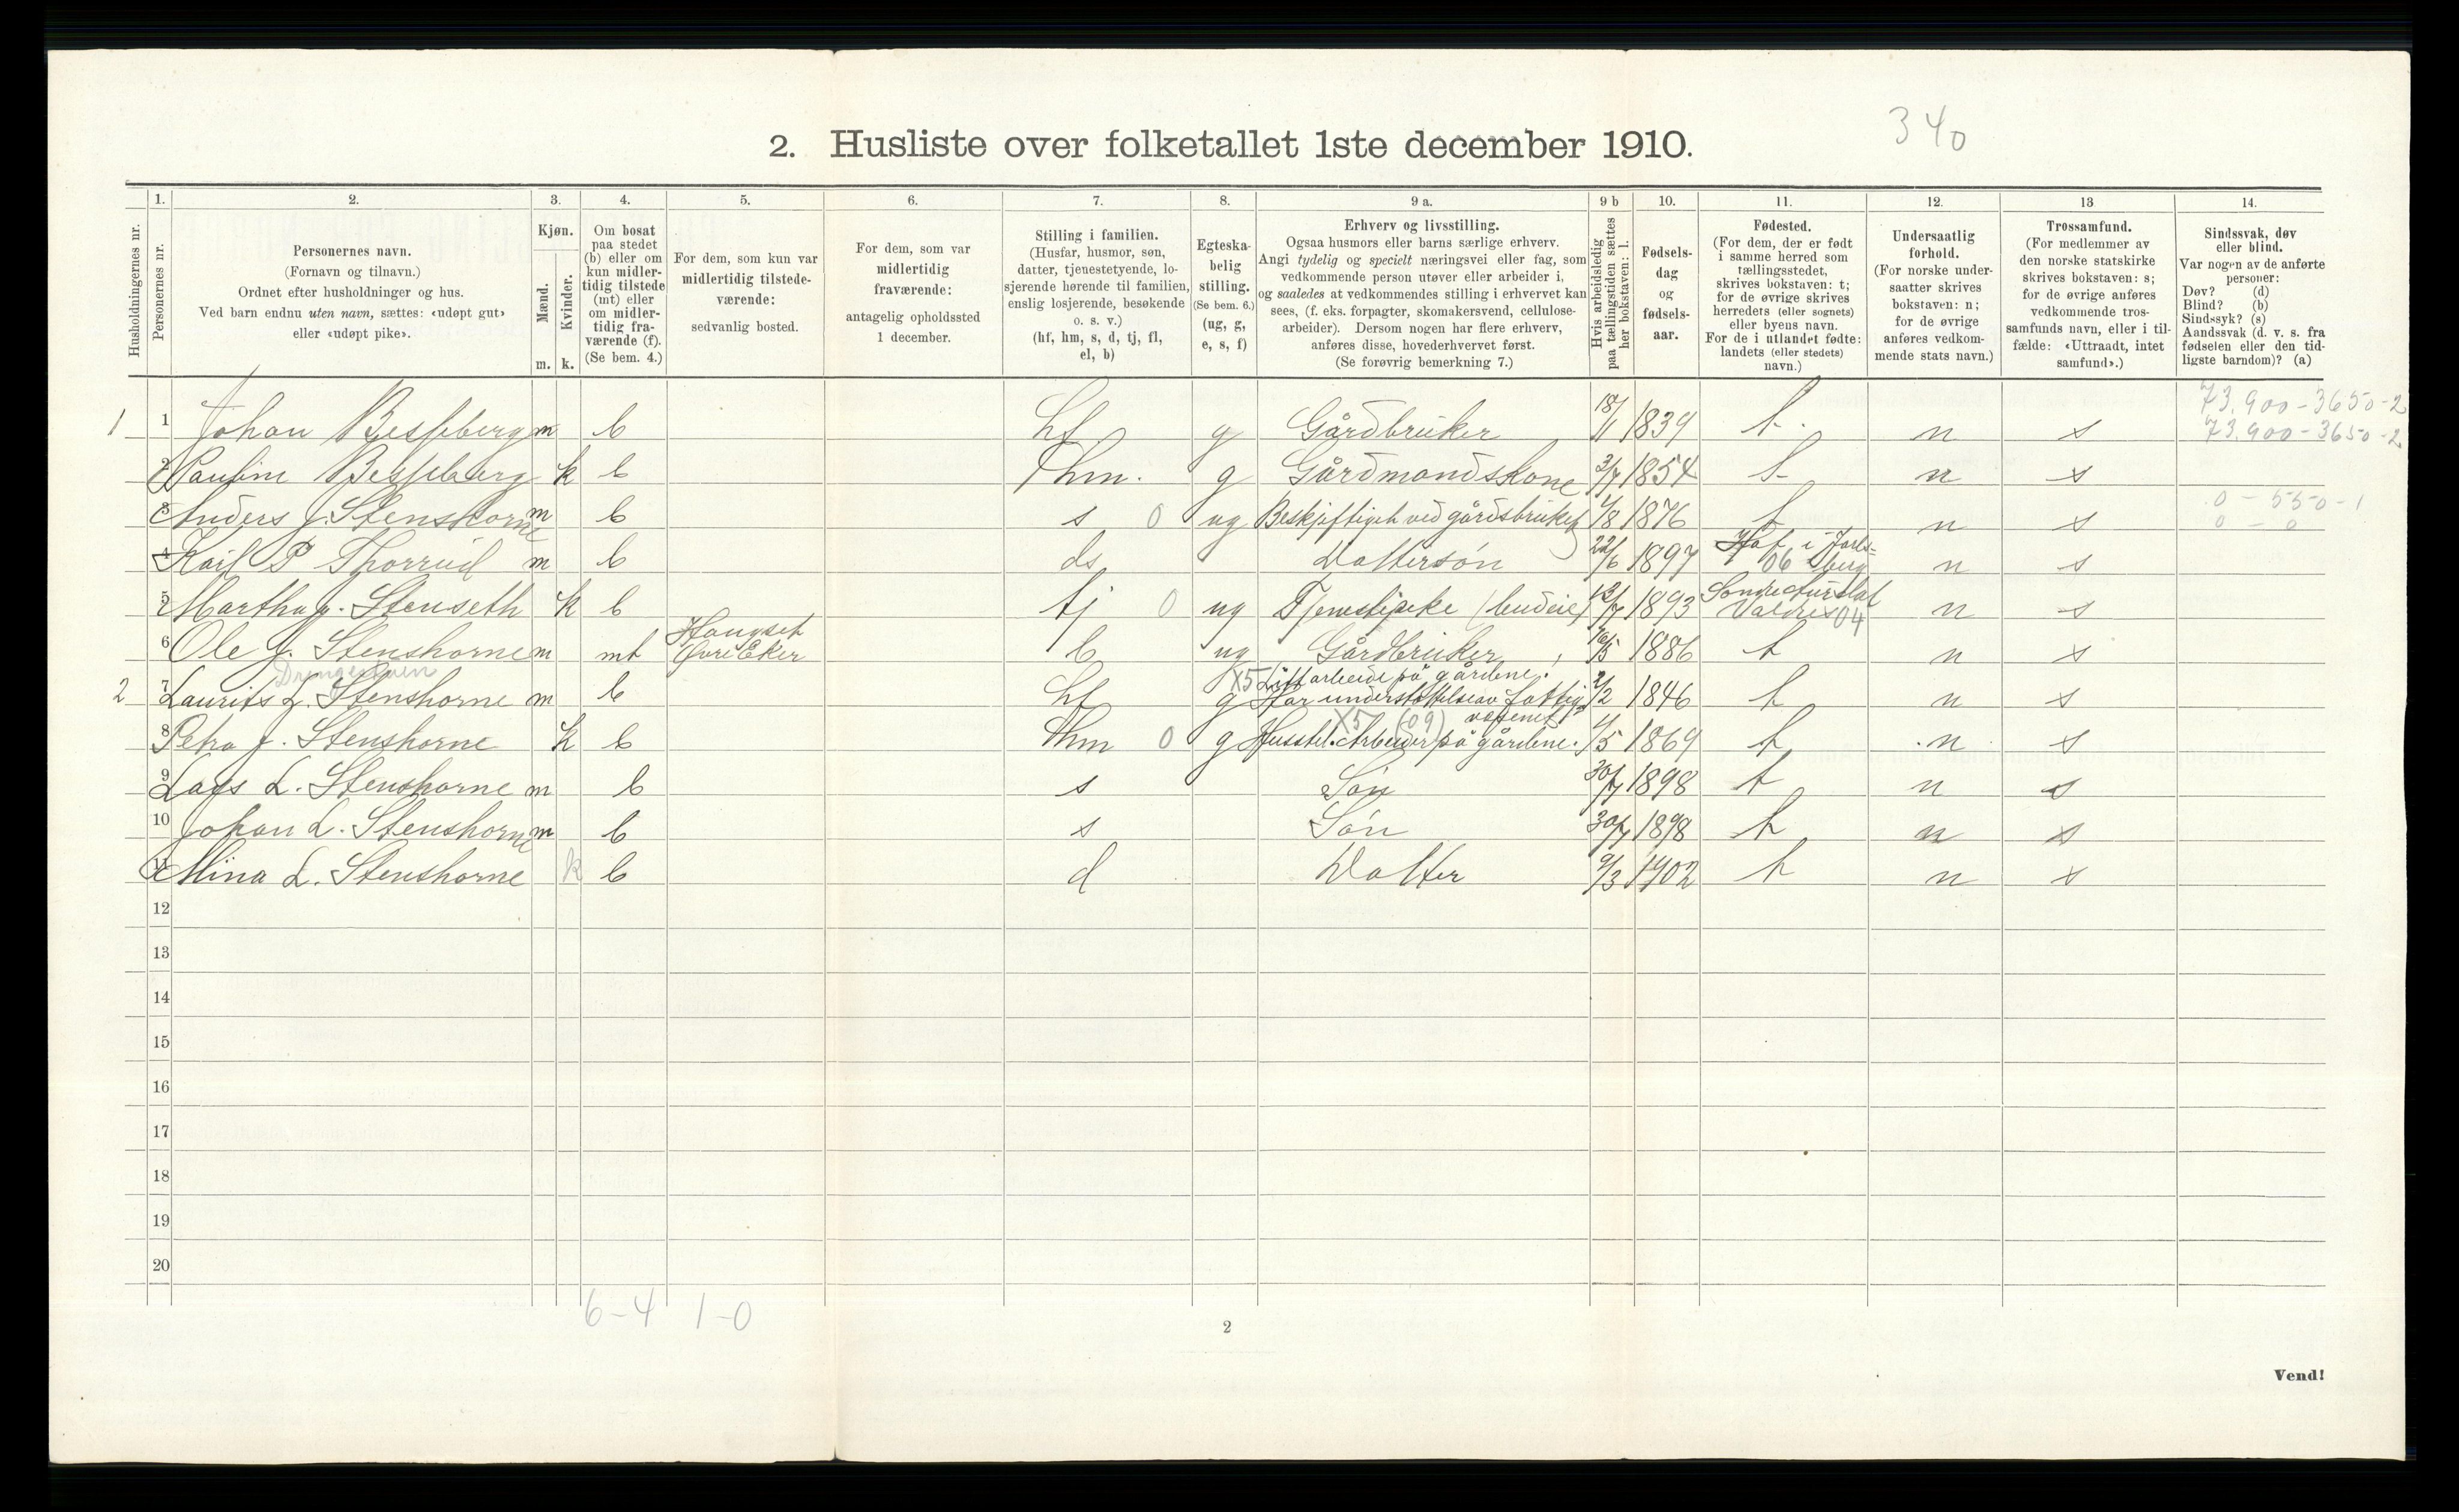 340
2. Husliste over folketallet 1ste december 1910.
Husholdningernes nr.
1.
Personernes nr.
2.
Personernes navn.
(Fornavn og tilnavn.)
Ordnet efter husholdninger og hus.
Ved barn endnu uten navn, sættes: «udøpt gut»
eller «udøpt pike».
3.
Kjøn.
Mænd.
Kvinder.
m. k.
4.
Om bosat
paa stedet
(b) eller om
kun midler-
tidig tilstede
(mt) eller
om midler-
tidig fra-
værende (f).
(Se bem. 4.)
5.
For dem, som kun var
midlertidig tilstede-
værende:
sedvanlig bosted.
6.
For dem, som var
midlertidig
fraværende:
antagelig opholdssted
1 december.
7.
Stilling i familien.
(Husfar, husmor, søn,
datter, tjenestetyende, lo-
sjerende hørende til familien,
enslig losjerende, besøkende
o. s. v.)
(hf, hm, s, d, tj, fl,
el, b)
8.
Egteska-
belig
stilling.
(Se bem. 6.)
(ug, g,
e, s, f)
9 a.
Erhverv og livsstilling.
Ogsaa husmors eller barns særlige erhverv.
Angi tydelig og specielt næringsvei eller fag, som
vedkommende person utøver eller arbeider i,
og saaledes at vedkommendes stilling i erhvervet kan
sees, (f. eks. forpagter, skomakersvend, cellulose-
arbeider). Dersom nogen har flere erhverv,
anføres disse, hovederhvervet først.
(Se forøvrig bemerkning 7.)
9 b
Hvis arbeidsledig
paa tællingstiden sættes
her bokstaven: l.
10.
Fødsels-
dag
og
fødsels-
aar.
11.
Fødested.
(For dem, der er født
i samme herred som
tællingsstedet,
skrives bokstaven: t;
for de øvrige skrives
herredets (eller sognets)
eller byens navn.
For de i utlandet fødte:
landets (eller stedets)
navn.)
12.
Undersaatlig
forhold.
(For norske under-
saatter skrives
bokstaven: n;
for de øvrige
anføres vedkom-
mende stats navn.)
13
Trossamfund.
(For medlemmer av
den norske statskirke
skrives bokstaven: s;
for de øvrige anføres
vedkommende tros-
samfunds navn, eller i til-
fælde: «Uttraadt, intet
samfund».)
14.
Sindssvak, døv
eller blind.
Var nogen av de anførte
personer:
Døv? (d)
Blind? (b)
Sindssyk? (s)
Aandssvak (d. v. s. fra
fødselen eller den tid-
ligste barndom)? (a)
73.900-3650-2
1 1 Johan Besseberg m b hf g Gårdbruker 18/11 1839 t n s 73.900-3650-2
2 Pauline Besseberg k b hm. g Gårdmandskone 3/7 1854 t n s
0 - 550-1
3 Anders J. Stenshorne m b s 0 ug Beskjeftiget ved gårdsbruket /8 1876 t n s 0 - 0
4 Karl P Thorrud m b ds Dattersøn 22/6 1897 Hof i Jarls-
berg 06 n s
5 Martha J. Stenseth k b tj 0 ug Tjenestpike (budeie) 13/7 1893 Søndre Aurdal
Valdres 04 n s
6 Ole J. Stenshorne m mt Haugset
Øvre Eker b ug Gårdbruker 16/5 1886 t n s
Drengestuen
2 7 Laurits L. Stenshorne m b hf g X5 Litt arbeide på gårdene.
Har understøttelse av fattig-
væsenet 2/2 1846 t n s
8 Petra J. Stenshorne k b hm 0 g X5 (09)
Husstel. Arbeider på gårdene. /5 1869 t n s
9 Lars L. Stenshorne m b s Søn 30/7 1898 t n s
10 Johan L. Stenshorne m b s Søn 30/7 1898 t n s
11 Mina L. Stenshorne k b d Datter 9/3 1902 t n s
12
13
14
15
16
17
18
19
20
6-4 1-0
2
Vend!